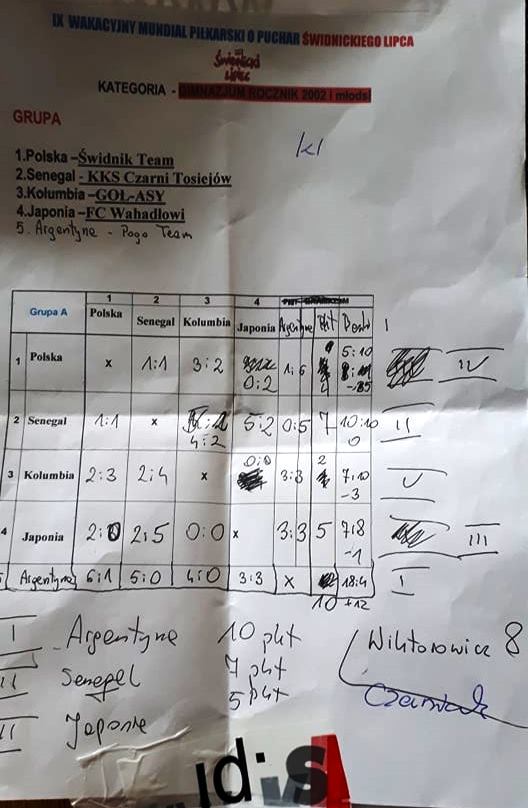 IX WAKACYJNY MUNDIAL PIŁKARSKI O PUCHAR ŚWIDNICKIEGO LIPCA
Świdnicki
Lipiec
KATEGORIA - GIMNAZJUM ROCZNIK 2002 i młodsi
GRUPA
kl
1.Polska –Świdnik Team
2.Senegal - KKS Czarni Tosiejów
3.Kolumbia –GOŁ-ASY
4.Japonia –FC Wahadłowi
5. Argentyna - Pogo Team
1 2 3 4
Grupa A Polska Senegal Kolumbia Japonia Argentyna Pkt
1 Polska x 1:1 3:2 0:2 1:6 4 5:10 IV
2 Senegal 1:1 x 4:2 5:2 0:5 7 10:10 0 II
3 Kolumbia 2:3 2:4 x 0:0 3:3 2 7:10 -3 V
4 Japonia 2:0 2:5 0:0 x 3:3 5 7:8 -1 III
Argentyna 6:1 5:0 4:0 3:3 x 10 18:4 +12 I
I Argentyna 10 pkt
II Senegal 7 pkt
Japonia 5 pkt
Wiktorowicz 8